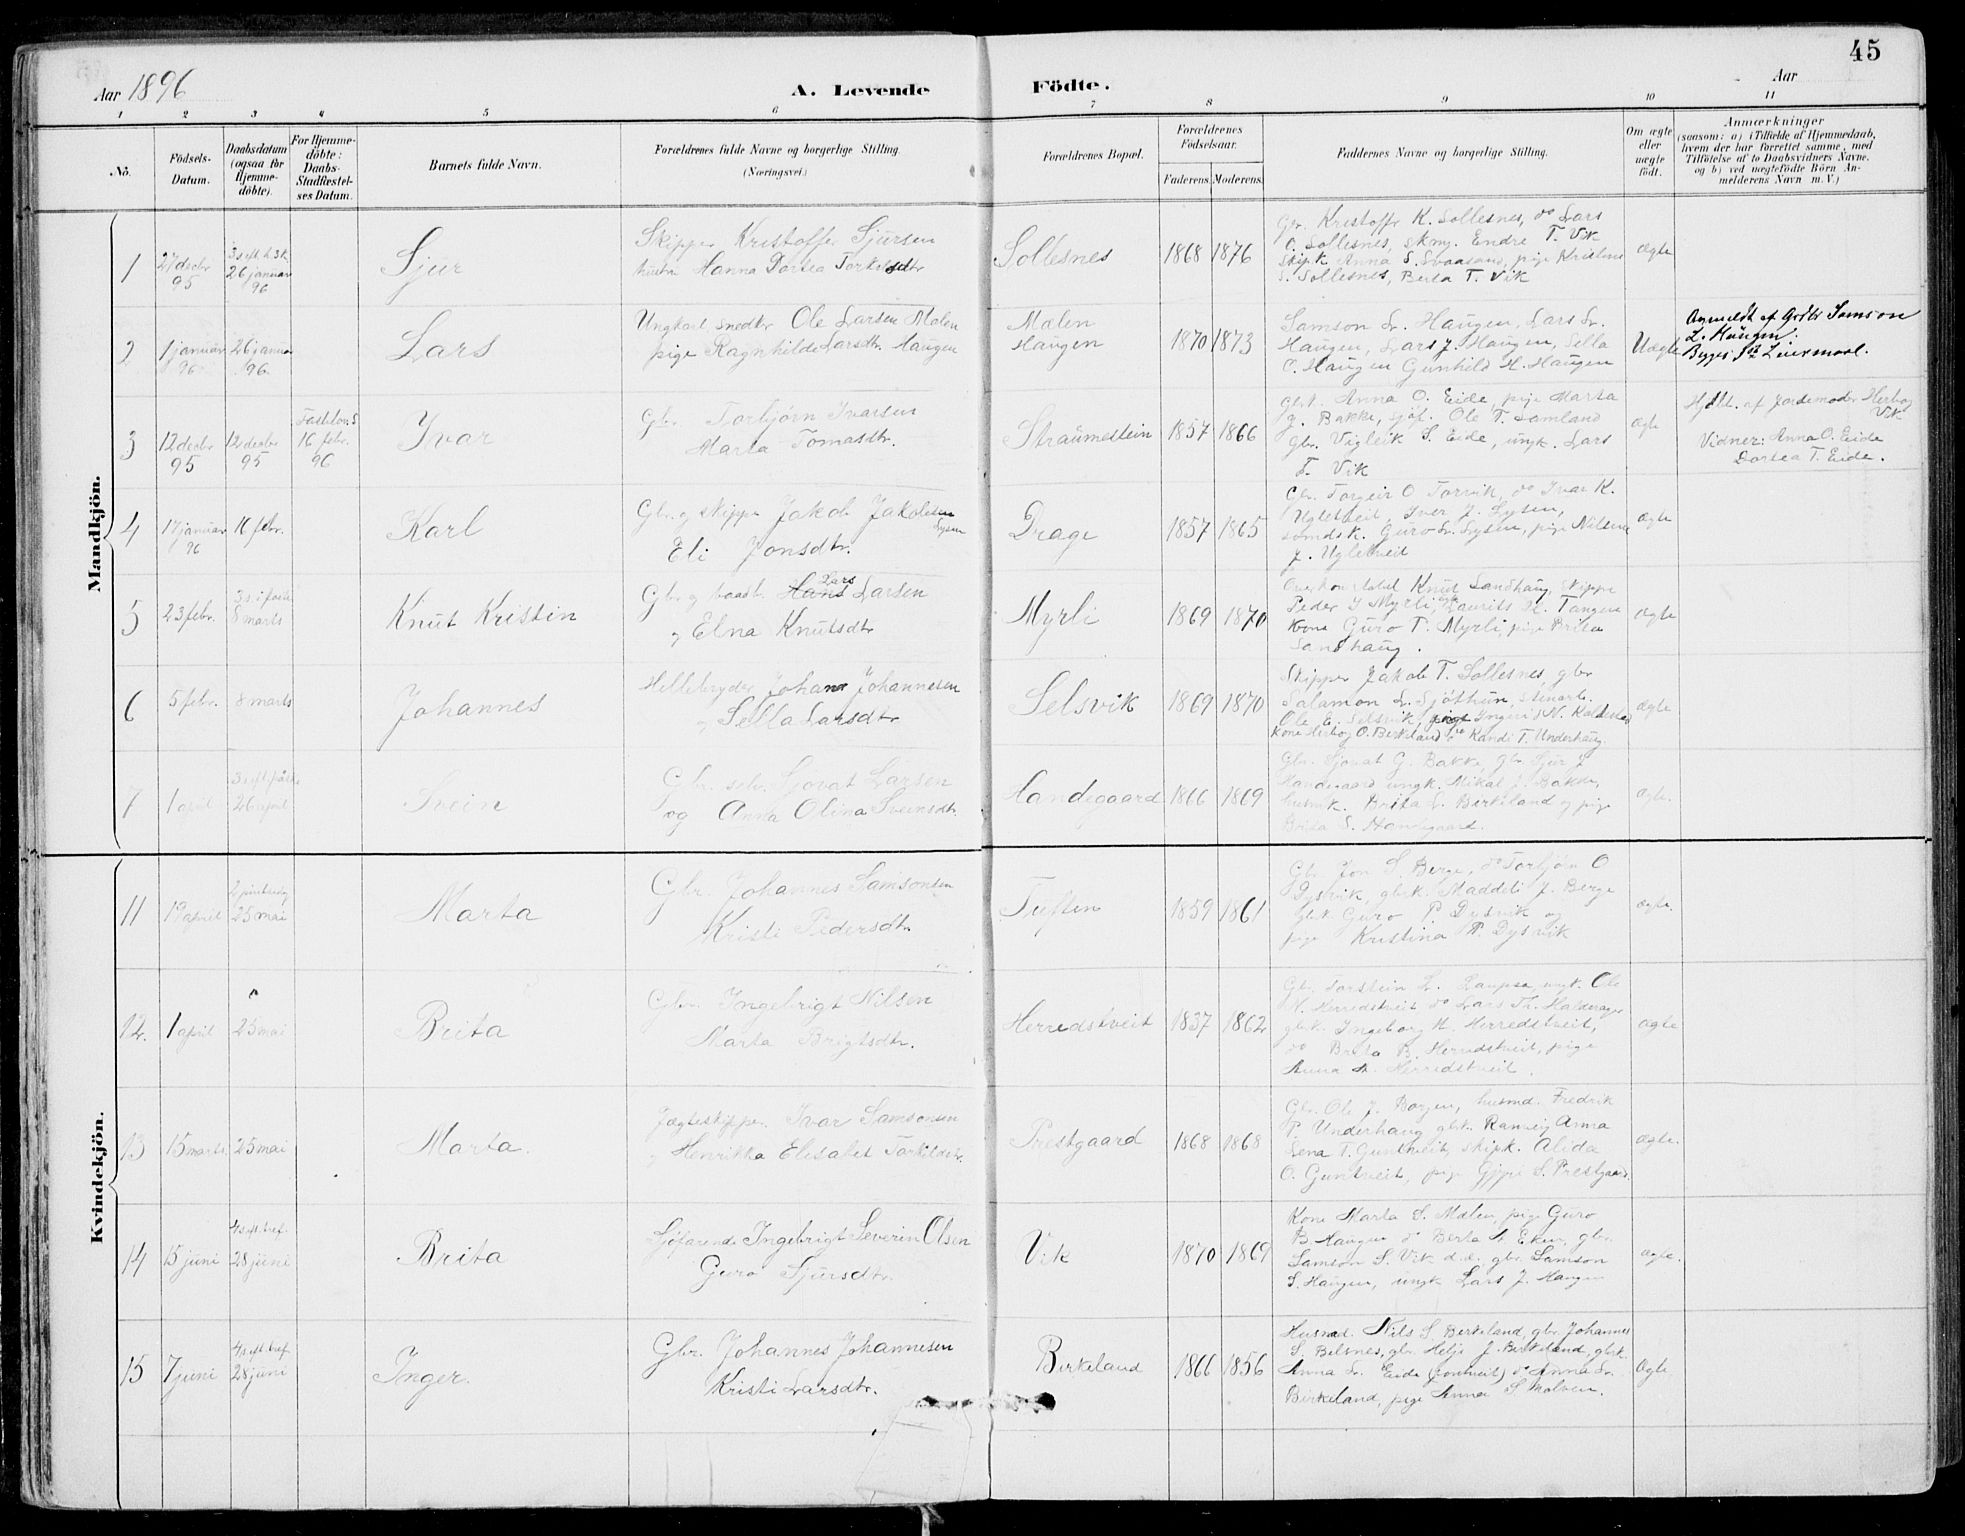 45
Aar 1896
A. Levende Födte.
Aar
1 2 3 4 5 6 7 8 9 10 11
No.
Födsels-Datum.
Daabsdatum (ogsaa for Hjemme-döbte).
For Hjemme-döbte: Daabs-Stadfæstel-ses Datum.
Barnets fulde Navn.
Forældrenes fulde Navne og borgerlige Stilling. (Næringsvei.)
Forældrenes Bopæl.
Forældrenes Födselsaar.
Faderens. Moderens.
Faddernes Navne og borgerlige Stilling.
Om ægte eller uægte födt.
Anmærkninger
(saasom: a) i Tilfælde af Hjemmedaab,
hvem der har forrettet samme, med
Tilföielse af to Daabsvidners Navne.
og b) ved uægtefödte Börn An-
melderens Navn m. V.)
Mandkjön.
1
27 decbr 95
26 januar 96
Sjur
Skipper Kristoffer Sjursen
hustru Hanna Dortea Torkildsdtr
Sollesnes
1868 1876
Gbr. Kristoffer K. Sollesnes, do Lars
O. Sollesnes, skmg. Endre T. Vik
Skipk Anna S. Svaasand, pige Kristine
S. Sollesnes, Berta T. Vik
ægte
2
1 januar 96
26 januar 96
Lars
Ungkarl snedker Ole Larsen Mælen
pige Ragnhilde Larsdtr. Haugen
Mælen
Haugen
1870 1873
Samson L. Haugen, Lars L.
Haugen, Lars J. Haugen, Sella
O. Haugen Gunhild H. Haugen
Uægte
Anmeldt af Grdbr Samson
L. Haugen.
Begges 1ste Leiermaal.
3
12 decbr 95
12 decbr 95
Fastelav. S
16 febr. 96
Ivar
Gbr. Torbjörn Ivarsen
Marta Tomasdtr.
Straumestein
1857 1866
Anna O. Eide, pige Marta
g. Bakke, sjöf. Ole T. Samland
Gbr. Vigleik S. Eide, ungk. Lars
T. Vik
ægte
Hjdbt. af Jordemoder Herbog
Vik
Vidner: Anna O. Eide
Dortea T. Eide.
4
17 januar 96
16 febr.
Karl
Gbr. og skipper Jakob Jakobsen
Lysen
Eli Jonsdtr.
Drage
1857 1865
Gbr. Torgeir O Torvik, do Ivar K.
Ugletveit, Iver J. Lysen,
Guro L. Lysen, pige Nilsine
J. Ugletveit
ægte
5
23 febr.
8 marts
Knut Kristin
Lars
Gbr og baadb. Hans Larsen
og Elna Knutsdtr
Myrli
1869 1870
Knut Sandhaug, Skipper
Peder J Myrli, Laurits H. Tangen
Kone Guro T. Myrli, pige Brita
Sandhaug.
ægte
6
5 febr.
8 marts
Johannes
Hellebryder Johan Johannesen
og Sella Larsdtr
Selsvik
1869 1870
Skipper Jakob T. Sollesnes, gbr
Salamon L. Sjöthun, Stenarb.
Ole E. Selsvik, pige Ingeri N. Kaldestad
kone Herbog O. Birkeland, do Kandi T. Underhaug.
ægte
7
1 april
3 s. eft. påske
26 april
Svein
Gbr. selv. Sjovat Larsen
og Anna Olina Sveinsdtr.
Handegaard
1866 1869
Gbr. Sjovat G. Bakke, gbr Sjur J
Handegaard ungk. Mikal J. Bakke,
husmk. Brita L. Birkeland og pige
Brita S. Handegaard.
ægte.
Kvindekjön.
11
19 april
2 pintsedg
25 mai
Marta
Gbr. Johannes Samsonsen
Kristi Pedersdtr.
Tuften
1859 1861
Gbr. Jon S. Berge, do Torbjön O
Dysvik, gbrk. Maddeli J. Berge
gbrk Guro P. Dysvik og
pige Kristina P. Dysvik
ægte.
12.
1 april
25 mai
Brita
Gbr. Ingebrigt Nilsen
Marta Brigtsdtr.
Herredstveit
1837 1862
Gbr. Torstein L. Laupsa, ungk. Ole
N. Herredstveit do Lars Th. Halderager
gbrk. Ingeborg H. Herredstveit,
do Brita B. Herredstveit, pige
Anna A. Herredstveit.
ægte
13
15 marts.
25 mai
Marta.
Jægteskipper. Ivar Samsonsen
og Henrikka Elisabet Torkildsdtr.
Prestgaard
1868 1868
Gbr. Ole J. Borgen, husmd. Fredrik
P. Underhaug gbrk. Ranveig Anna
Lena T. Guntveit, skipk. Alida
O. Guntveit, pige Gjøri S. Prestgaard.
ægte.
14
15 juni
4 s. eft. tref.
28 juni
Brita
Sjöfarende Ingebrigt Severin Olsen
Guro Sjursdtr.
Vik
1870 1869
Kone Marta S. Mælen, pige Guro
B Haugen do Berta A Eken, gbr.
Samson S. Vik d.æ. gbr. Samson
S. Haugen, ungk Lars J. Haugen
ægte.
15
7 juni
4 s. eft. tref.
28 juni
Inger.
Gbr. Johannes Johannesen
Kristi Larsdtr.
Birkeland
1866 1856
Husmd. Nils S. Birkeland, gbr. Johannes
S. Belsnes, gbr. Helje J. Birkeland, gbrk.
Anna L. Eide do Anna L.
Birkeland, pige Anna S Malven.
Ægte